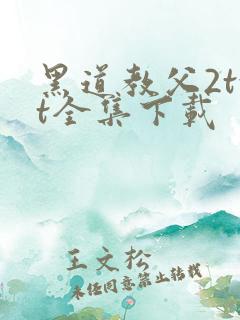 黑道教父2tx
t全集下载
王文松
未经同意禁止转载